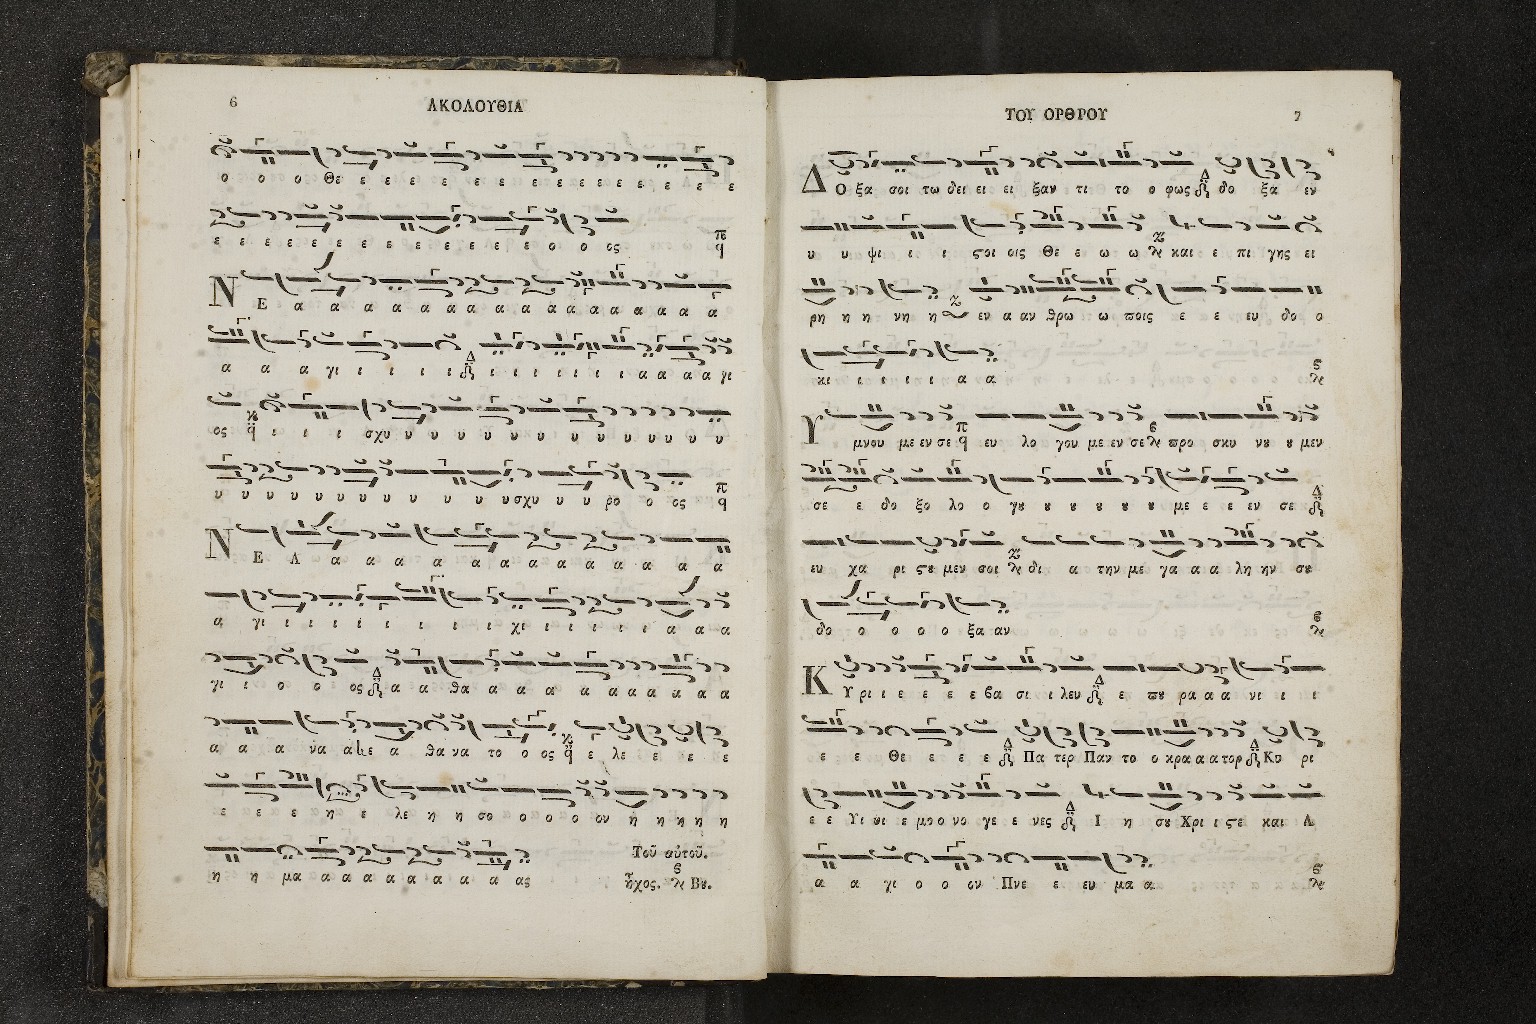 6
ΑΚΟΛΟΥΘΙΑ
ο ο ο Θε ε ε ε ε ε ε ε ε ε ε ε ε ε ε ε
ε ε ε ε ε ε ε ε ε ε ε ε ε ε ο ο ος π q
Ν Ε α α α α α α α α α α α α α α α α
α α α γι ι ι ι ι Δ ι ι ι ι ι ι α α α α γι
ος q ι ι ι σχυ υ υ υ υ υ υ υ υ υ υ υ υ υ υ
υ υ υ υ υ υ υ υ υ υ υ υσχυ υ υ ρο ο ος π q
Ν Ε Α α α α α α α α α α α α α
α γι ι ι ι ι ι ι ι ι χι ι ι ι ι ι α α α
γι ι ο ο ο ος Δ α α θα α α α α α α α α α
α α α να α ε α θα να το ο ος q ε λε ε ε ε
ε ε ε η ε λε η η σο ο ο ο ον η η η η η
η η μα α α α α α α α α ας
Τοῦ αὐτοῦ.
ἦχος. Βȣ.
ΤΟΥ ΟΡΘΡΟΥ
7
Δ Ο ξα σοι τω δει ει ει ξαν τι το ο φως Δ δο ξα εν
υ υ ψι ι ι ϛοι οις Θε ε ω ω και ε πι γης ει
ρη η η νη η εν α αν θρω ω ποις ε ε ευ δο ο
κι ι ι ι ι α α
Υ μνου με εν σε π q ευ λο γου με εν σε προ σκυ νȣ ȣ μεν
σε ε δο ξο λο ο γȣ ȣ ȣ ȣ ȣ ȣ με ε ε εν σε Δ
ευ χα ρι ϛȣ μεν σοι δι α την με γα α α λη ην σȣ
δο ο ο ο ο ξα αν
Κ Υ ρι ι ε ε ε ε βα σι ι λευ Δ ε πȣ ρα α α νι ι ι
ε ε Θε ε ε ε Δ Πα τερ Παν το ο κρα α α τορ Δ Κυ ρι
ε ε Υι υι ε μο ο νο γε ε νες Δ Ι η σȣ Χρι ι ϛε και Α
α α γι ο ο ον Πνε ε ευ μα α